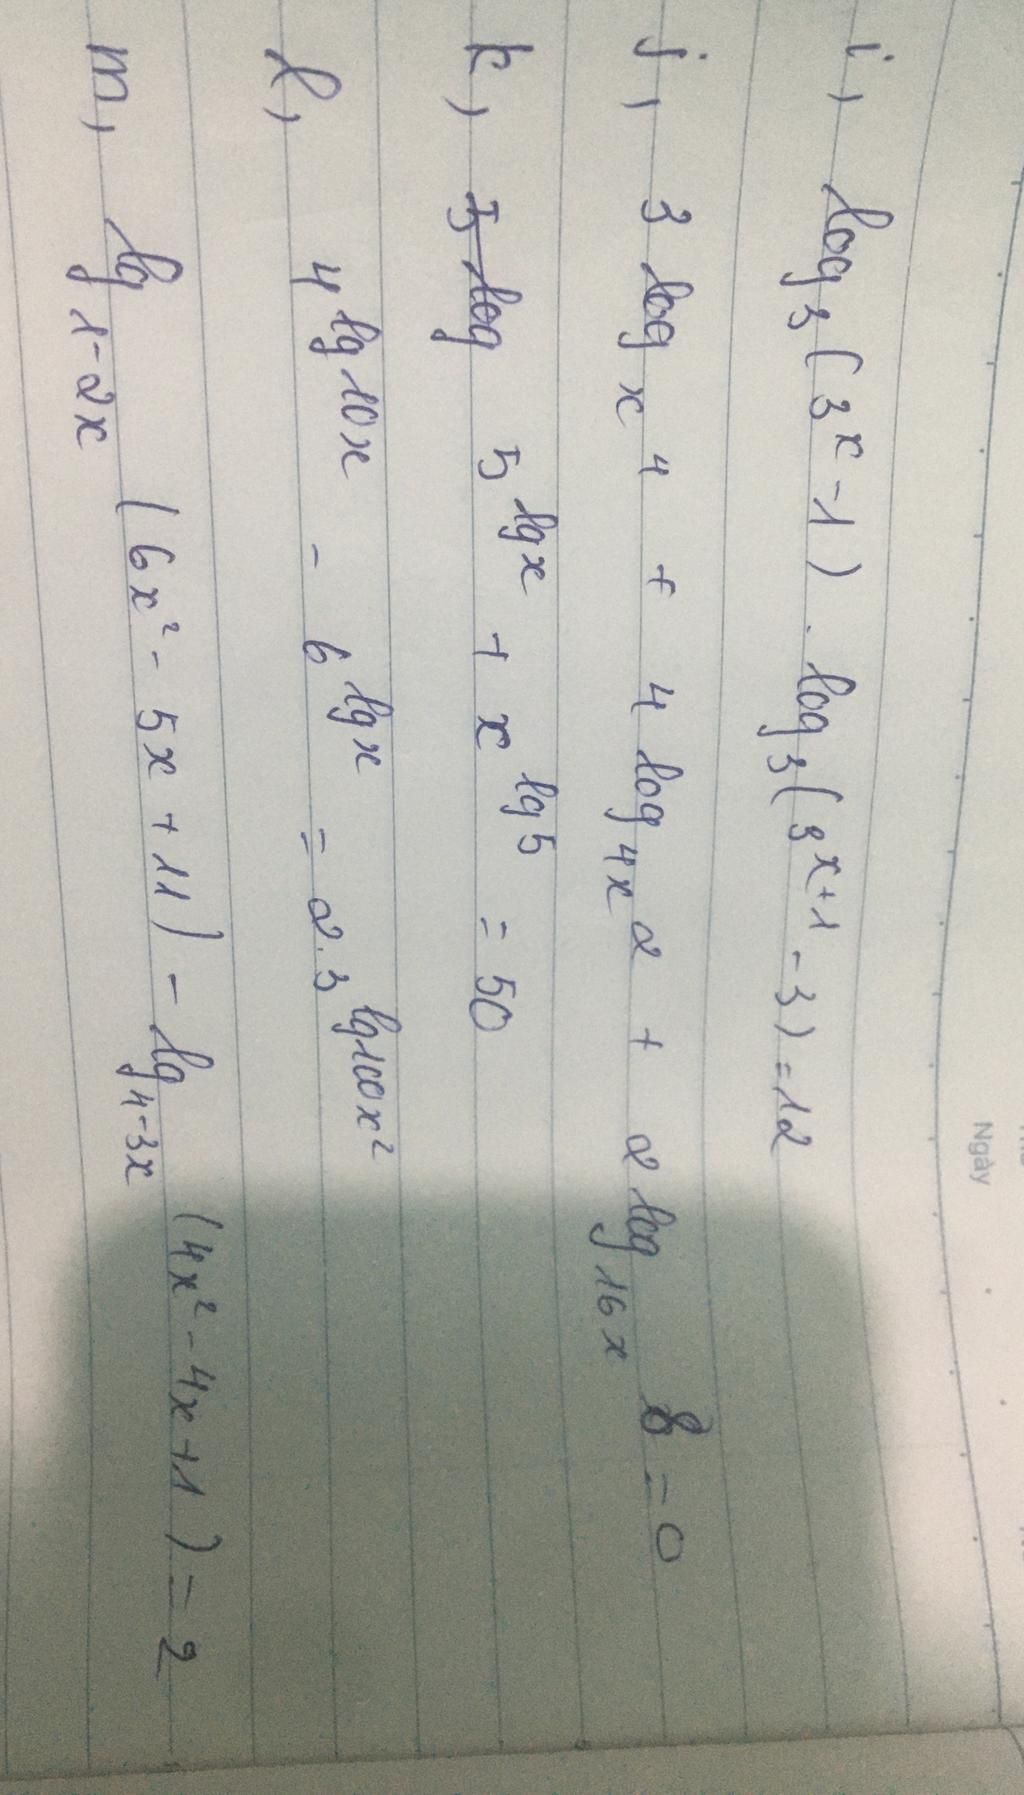 Ngày
i, log₃(3ˣ-1) . log₃(3ˣ⁺¹-3) = 12
j, 3 logₓ 4 + 4 log₄ₓ 2 + 2 log₁₆ₓ 8 = 0
k, 5^lg x + x^lg 5 = 50
l, 4^lg 10x - 6^lg x = 2.3^lg 100x²
m, lg₁₋₂ₓ (6x² - 5x + 11) - lg₄₋₃ₓ (4x² - 4x + 1) = 2